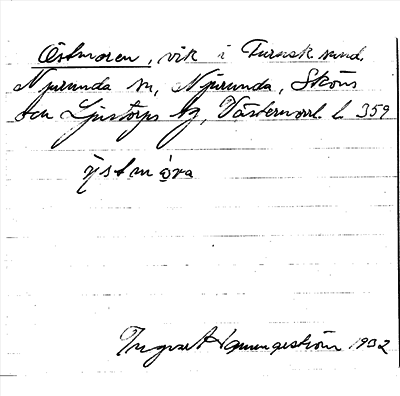 Östmoren, vik i Furusk. sund,
Njurunda sn, Njurunda, Sköns
och Ljustorps tg, Västernorrl. l. 359
ÿstmo̲ra
Ingvar Hammarström 1932